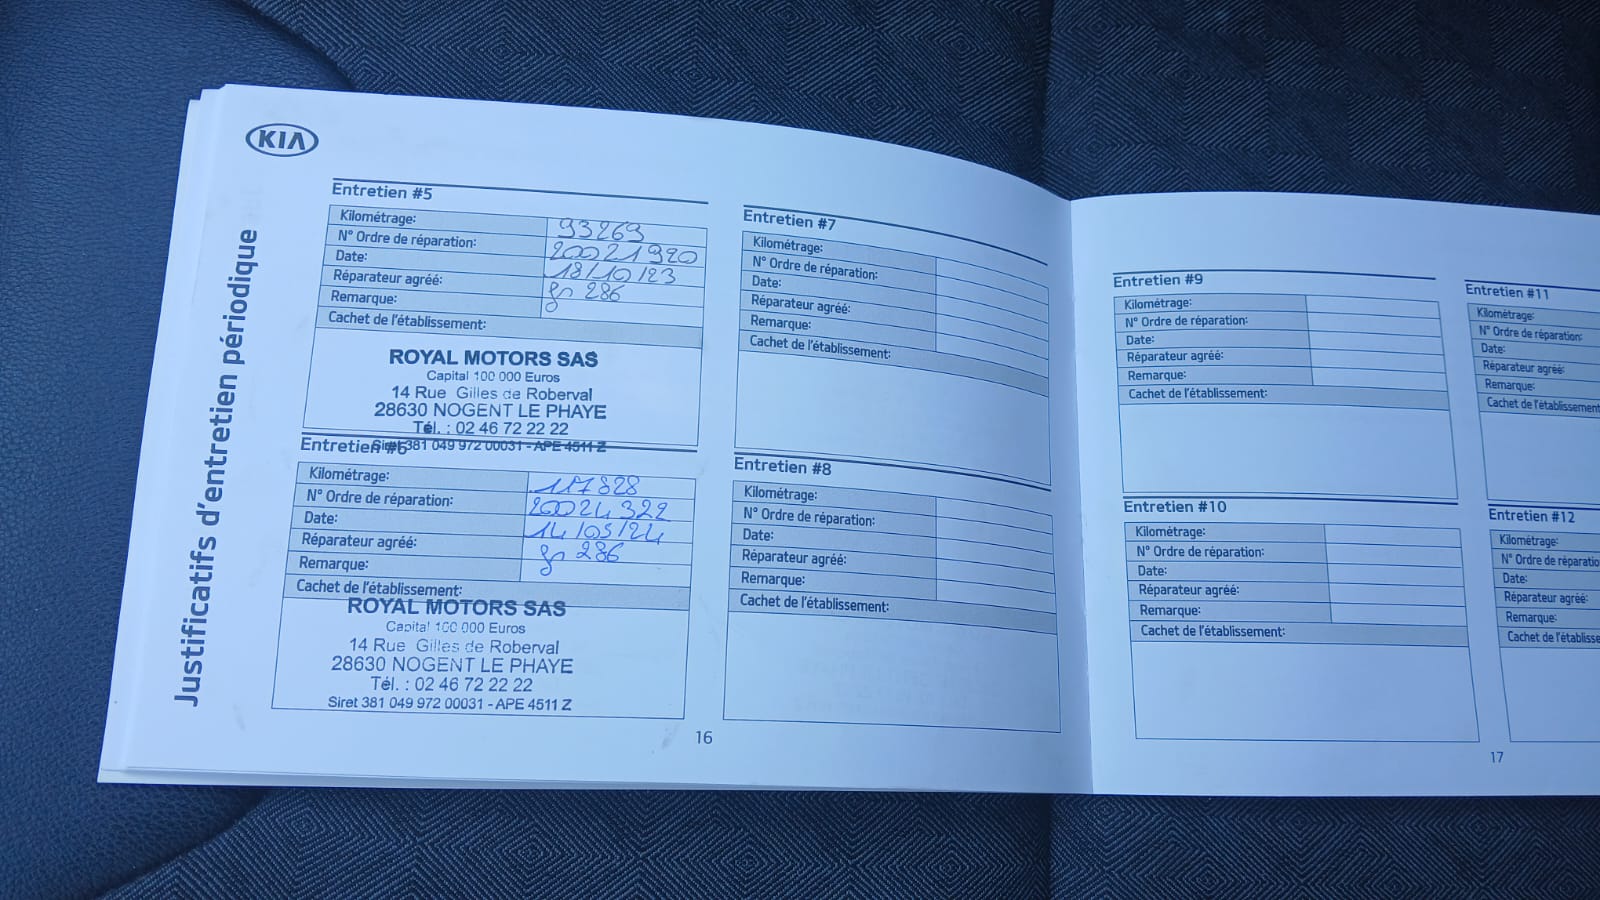 KIA
Justificatifs d'entretien périodique
Entretien #5
Kilométrage: 93269
N° Ordre de réparation: 20021920
Date: 18/10/23
Réparateur agréé: 286
Remarque:
Cachet de l'établissement:
ROYAL MOTORS SAS
Capital 100 000 Euros
14 Rue Gilles de Roberval
28630 NOGENT LE PHAYE
Tél. : 02 46 72 22 22
Siret 381 049 972 00031 - APE 4511 Z
Entretien #6
Kilométrage: 117828
N° Ordre de réparation: 20024322
Date: 14/05/24
Réparateur agréé: 286
Remarque:
Cachet de l'établissement:
ROYAL MOTORS SAS
Capital 100 000 Euros
14 Rue Gilles de Roberval
28630 NOGENT LE PHAYE
Tél. : 02 46 72 22 22
Siret 381 049 972 00031 - APE 4511 Z
Entretien #7
Kilométrage:
N° Ordre de réparation:
Date:
Réparateur agréé:
Remarque:
Cachet de l'établissement:
Entretien #8
Kilométrage:
N° Ordre de réparation:
Date:
Réparateur agréé:
Remarque:
Cachet de l'établissement:
16
Entretien #9
Kilométrage:
N° Ordre de réparation:
Date:
Réparateur agréé:
Remarque:
Cachet de l'établissement:
Entretien #10
Kilométrage:
N° Ordre de réparation:
Date:
Réparateur agréé:
Remarque:
Cachet de l'établissement:
Entretien #11
Kilométrage:
N° Ordre de réparation:
Date:
Réparateur agréé:
Remarque:
Cachet de l'établissement
Entretien #12
Kilométrage:
N° Ordre de réparatio
Date:
Réparateur agréé:
Remarque:
Cachet de l'établisse
17